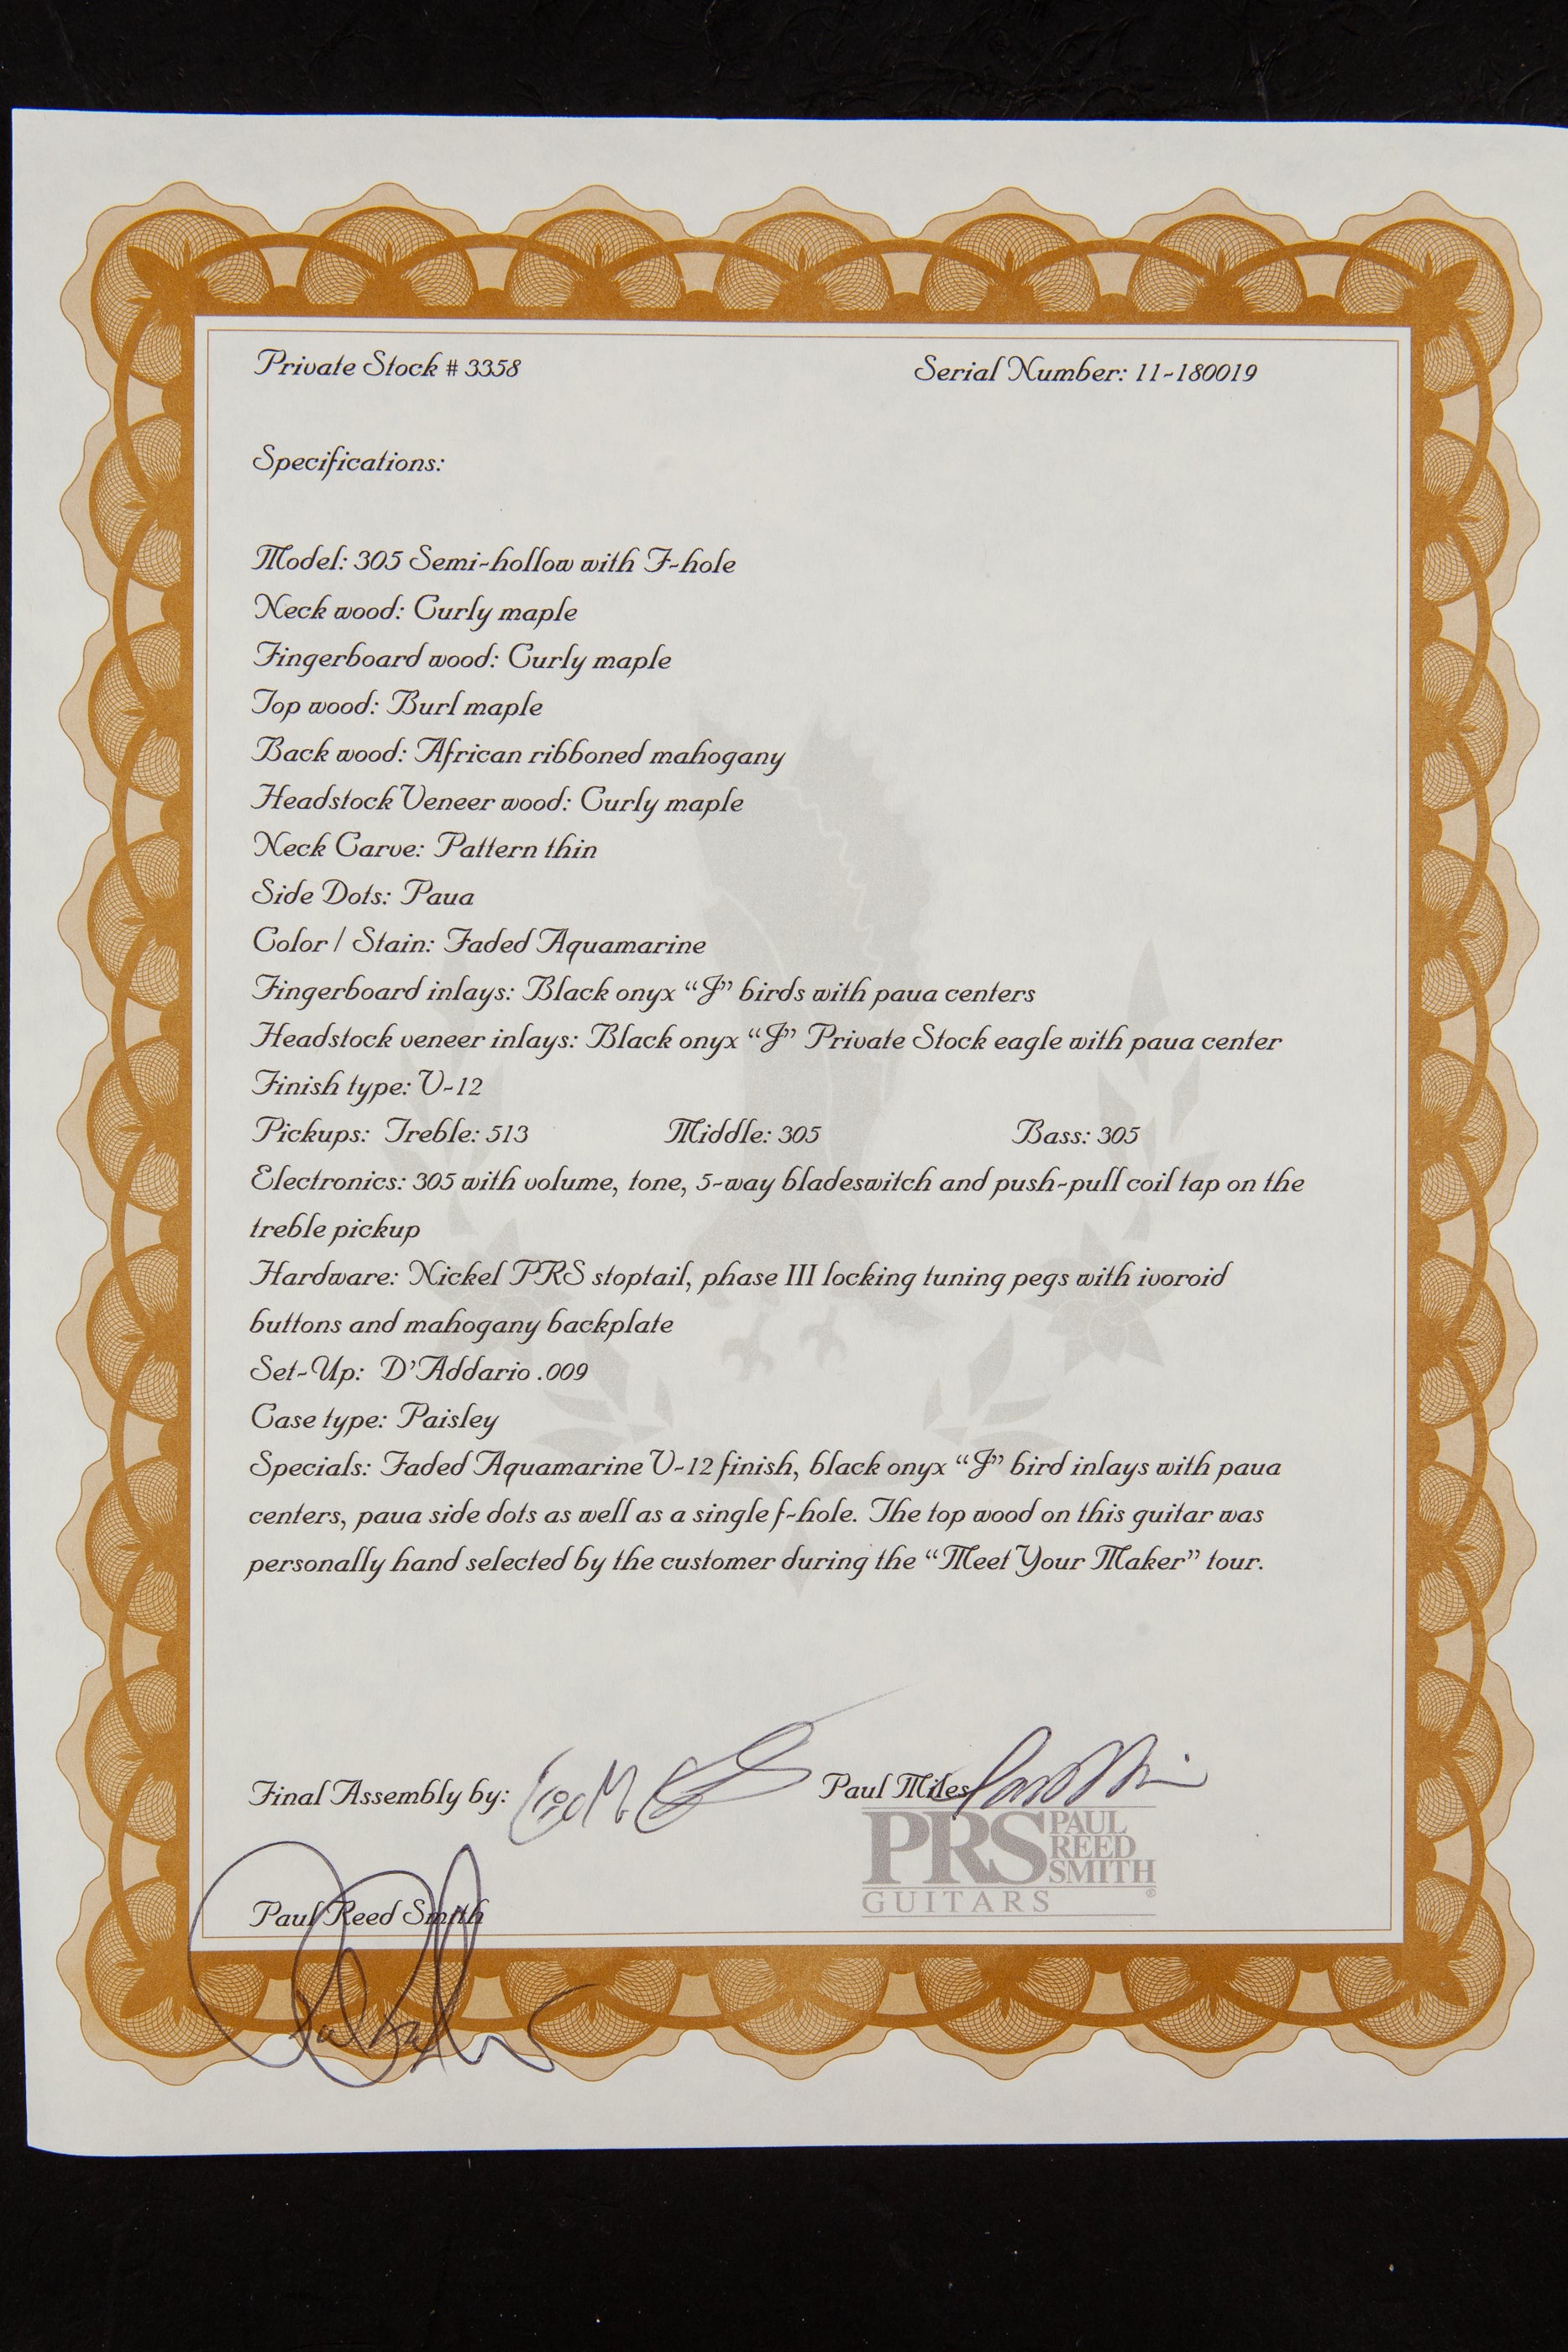 Private Stock # 3358 Serial Number: 11-180019
Specifications:
Model: 305 Semi-hollow with F-hole
Neck wood: Curly maple
Fingerboard wood: Curly maple
Top wood: Burl maple
Back wood: African ribboned mahogany
Headstock Veneer wood: Curly maple
Neck Carve: Pattern thin
Side Dots: Paua
Color / Stain: Faded Aquamarine
Fingerboard inlays: Black onyx “J” birds with paua centers
Headstock veneer inlays: Black onyx “J” Private Stock eagle with paua center
Finish type: V-12
Pickups: Treble: 513 Middle: 305 Bass: 305
Electronics: 305 with volume, tone, 5-way bladeswitch and push-pull coil tap on the
treble pickup
Hardware: Nickel PRS stoptail, phase III locking tuning pegs with ivoroid
buttons and mahogany backplate
Set-Up: D’Addario .009
Case type: Paisley
Specials: Faded Aquamarine V-12 finish, black onyx “J” bird inlays with paua
centers, paua side dots as well as a single f-hole. The top wood on this guitar was
personally hand selected by the customer during the “Meet Your Maker” tour.
Final Assembly by: Paul Miles
PRS PAUL
REED
SMITH
GUITARS ®
Paul Reed Smith